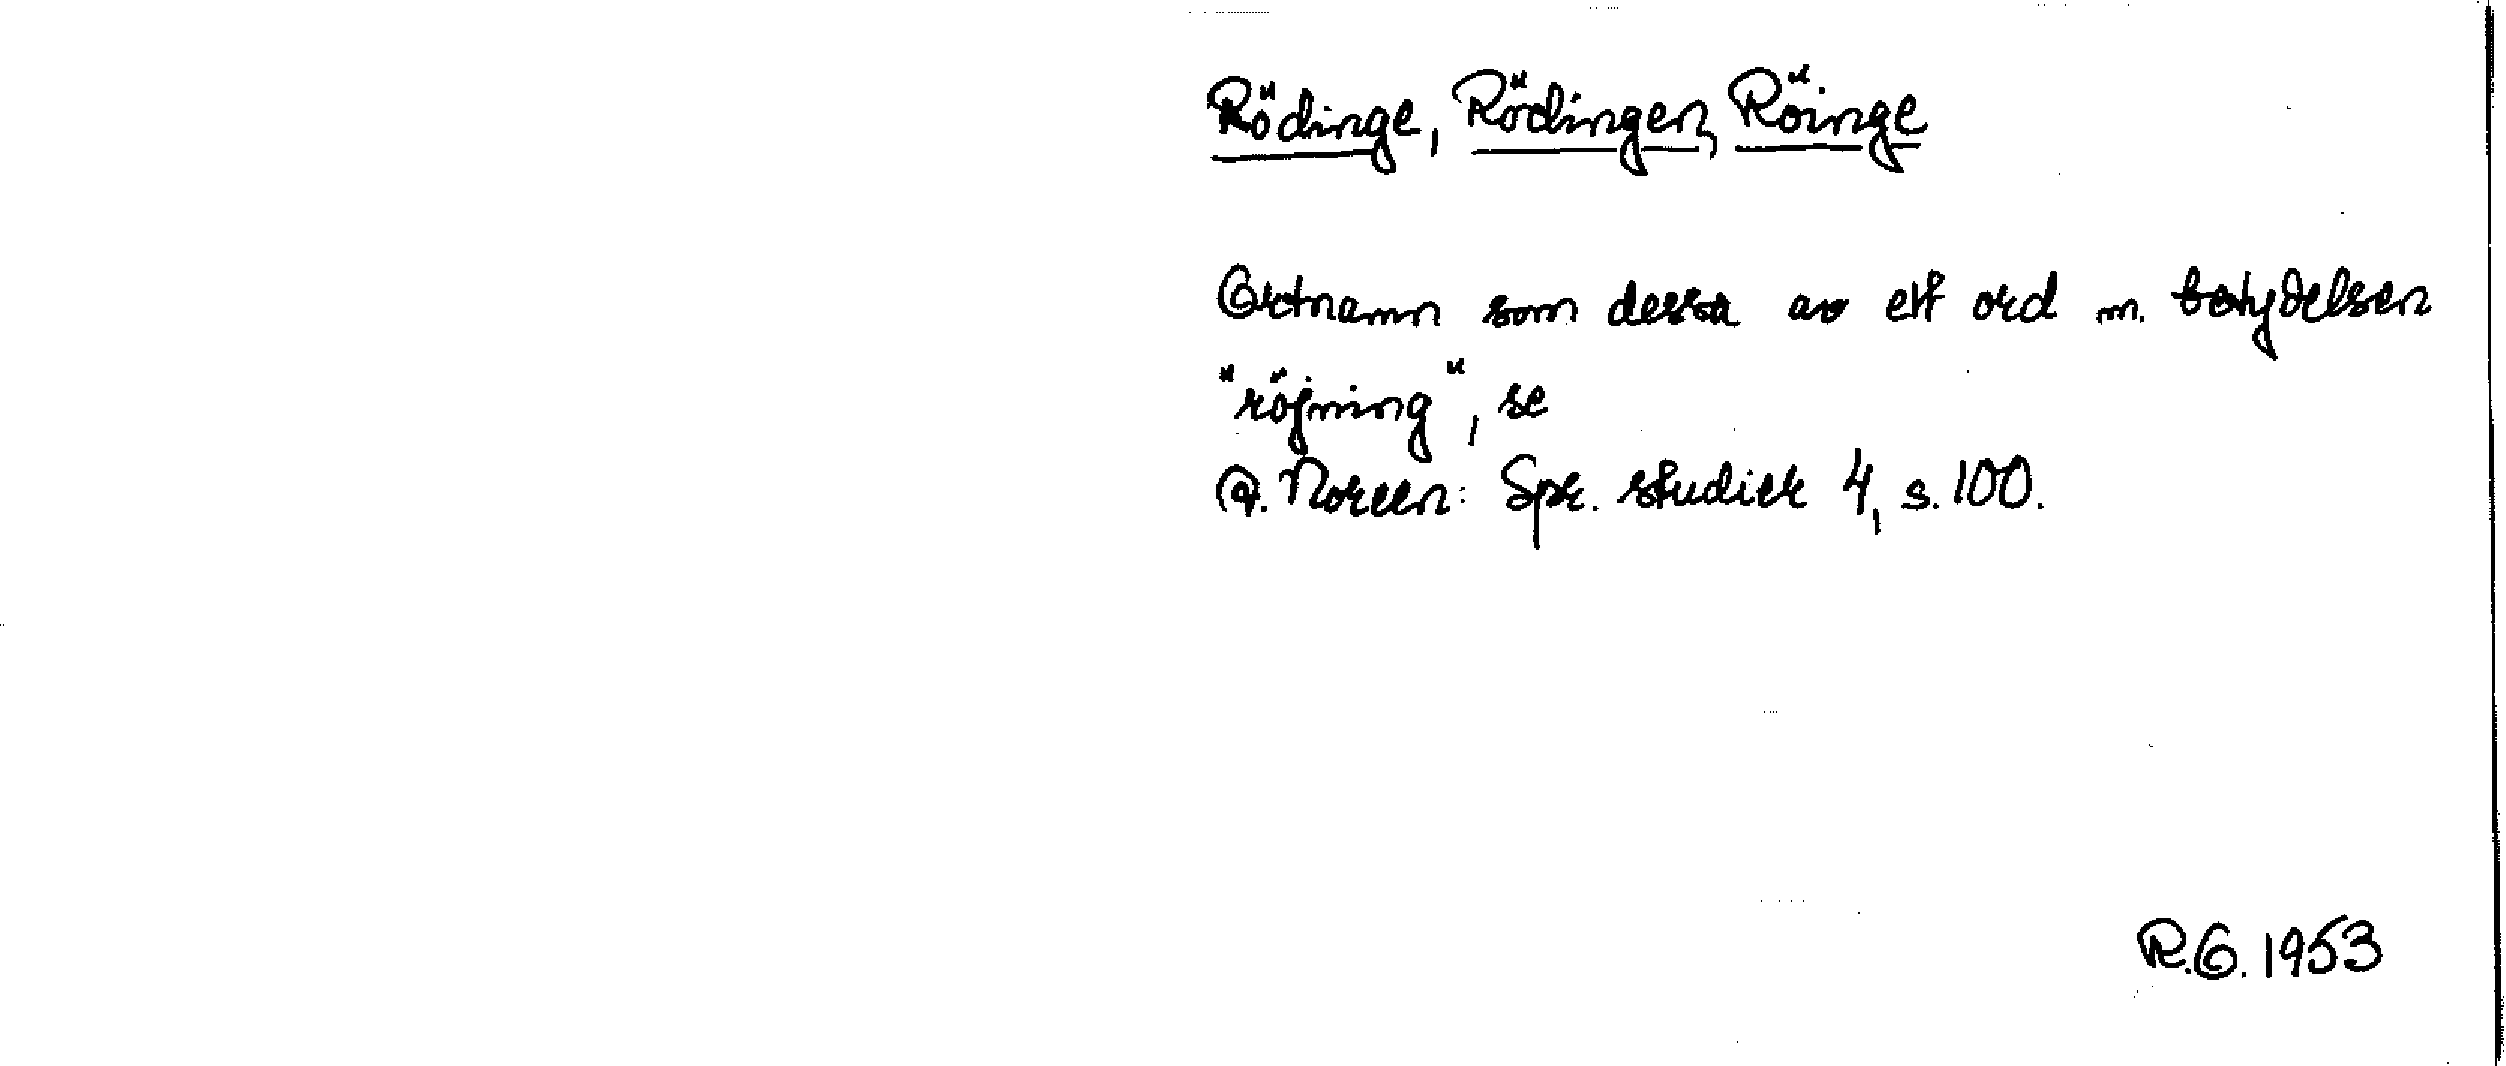 Rödinge, Rödingen, Röinge
Ortnamn som dessa av ett ord m. betydelsen
"röjning", se
A. Noreen: Spr. studier 4, s. 100.
R.G. 1953